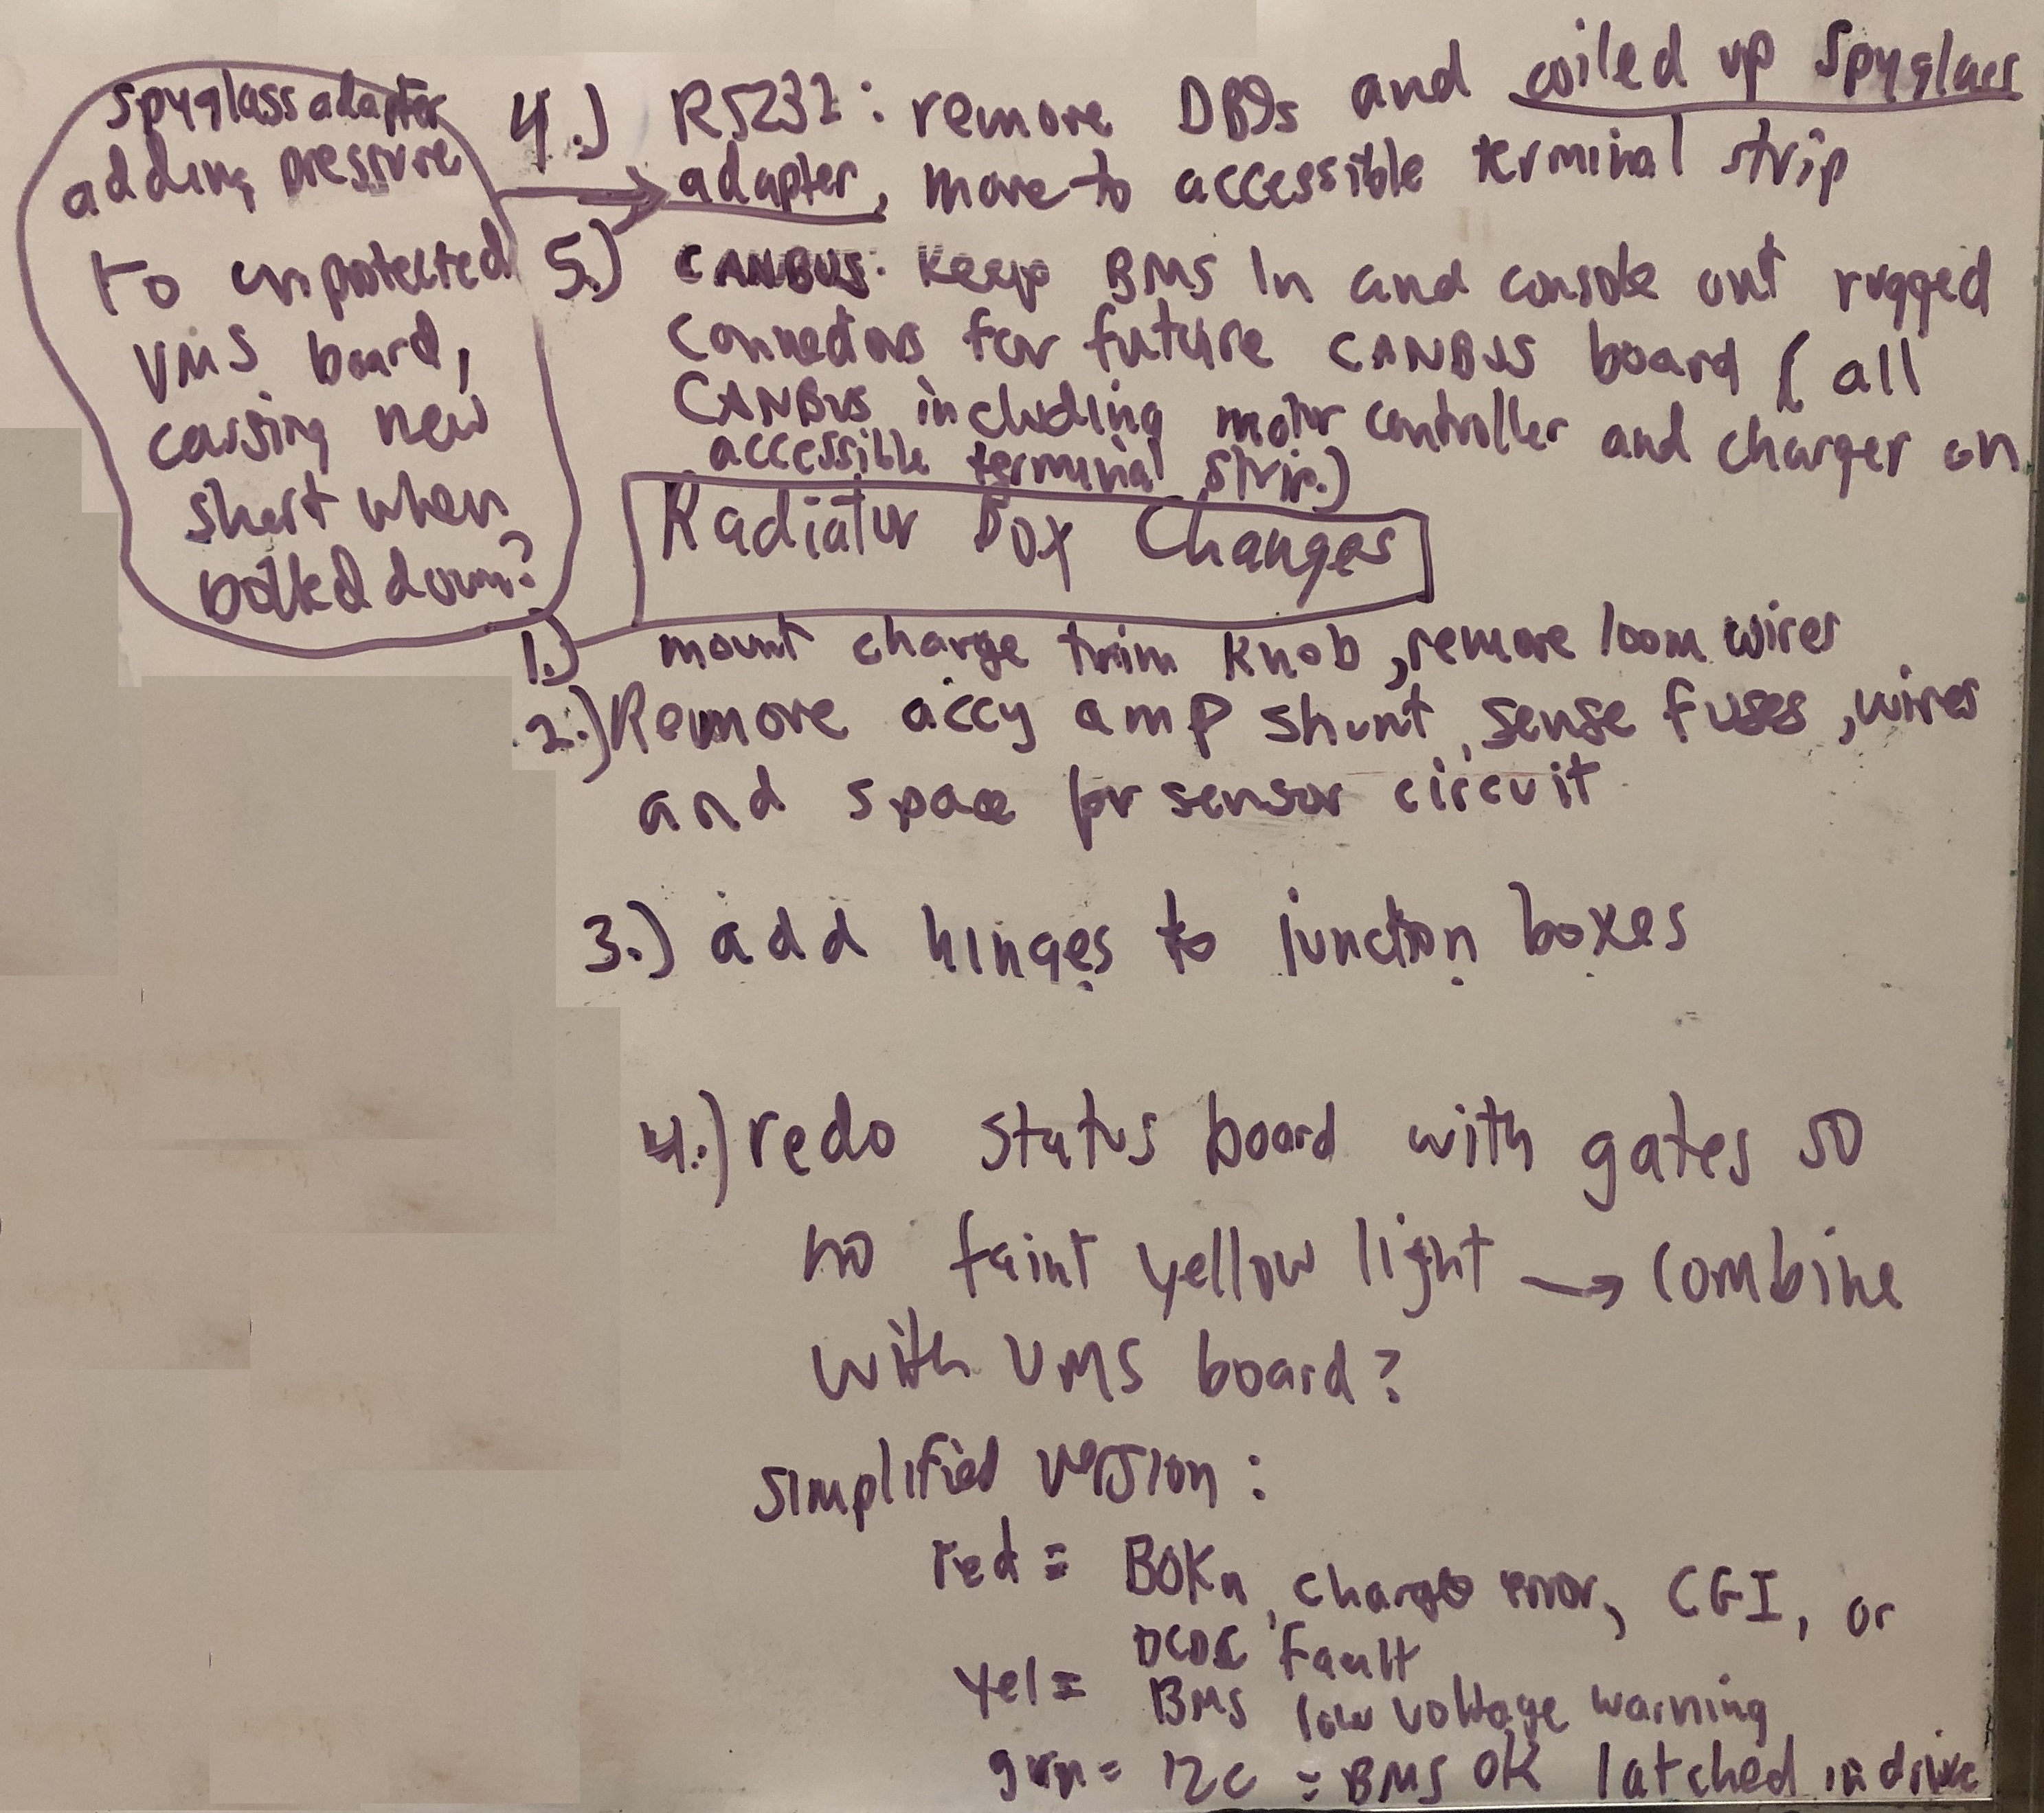 Spyglass adapter
adding pressure
to unprotected
VMS board,
causing new
short when
bolted down?
4.) RS232: remove DB9s and coiled up Spyglass
adapter, move to accessible terminal strip
5.) CANBUS: Keep BMS In and console out rugged
Connectors for future CANBUS board (all
CANBUS including motor controller and charger on
accessible terminal strip.)
Radiator Box Changes
1.) mount charge trim knob, remove loom wires
2.) Remove accy amp shunt, sense fuses, wires
and space for sensor circuit
3.) add hinges to junction boxes
4.) redo status board with gates so
no faint yellow light → combine
with VMS board?
simplified version:
red = BOKn, charge error, CGI, or
DCDC Fault
Yel = BMS low voltage warning
grn = 12c = BMS OK latched in drive